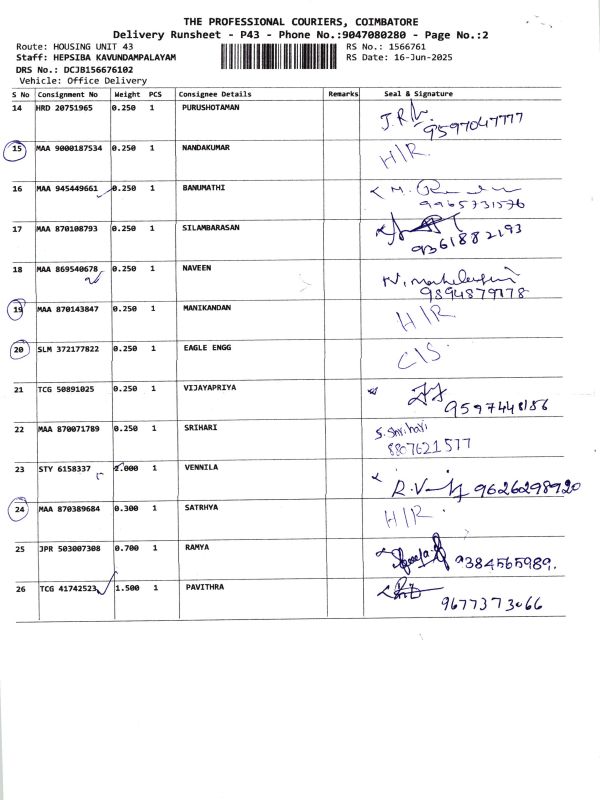 THE PROFESSIONAL COURIERS, COIMBATORE
Delivery Runsheet - P43 - Phone No.:9047080280 - Page No.:2
Route: HOUSING UNIT 43 RS No.: 1566761
Staff: HEPSIBA KAVUNDAMPALAYAM RS Date: 16-Jun-2025
DRS No.: DCJB156676102
Vehicle: Office Delivery
S No Consignment No Weight PCS Consignee Details Remarks Seal & Signature
14 HRD 20751965 0.250 1 PURUSHOTAMAN
9597047777
15 MAA 9000187534 0.250 1 NANDAKUMAR H/R.
16 MAA 945449661 0.250 1 BANUMATHI
9965731576
17 MAA 870108793 0.250 1 SILAMBARASAN
9361882193
18 MAA 869540678 0.250 1 NAVEEN
9894879178
19 MAA 870143847 0.250 1 MANIKANDAN H/R
20 SLM 372177822 0.250 1 EAGLE ENGG C/S.
21 TCG 50891025 0.250 1 VIJAYAPRIYA
9597448186
22 MAA 870071789 0.250 1 SRIHARI S. Srihari
8807621577
23 STY 6158337 2.000 1 VENNILA
9626298920
24 MAA 870389684 0.300 1 SATRHYA H/R.
25 JPR 503007308 0.700 1 RAMYA
9384565989.
26 TCG 41742523 1.500 1 PAVITHRA
9677373066